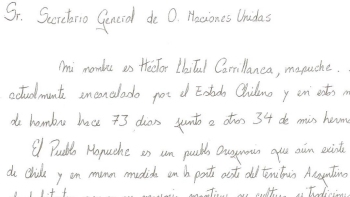 Sr. Secretario General de O. Naciones Unidas
mi nombre es Héctor Llaitul Carrillanca, mapuche.
actualmente encarcelado por el Estado Chileno y en estos m
de hambre hace 73 dias junto a otros 34 de mis herma
El Pueblo Mapuche es un pueblo Originario que aún existe
de Chile y en menor medida en la parte este del territrio Argentino